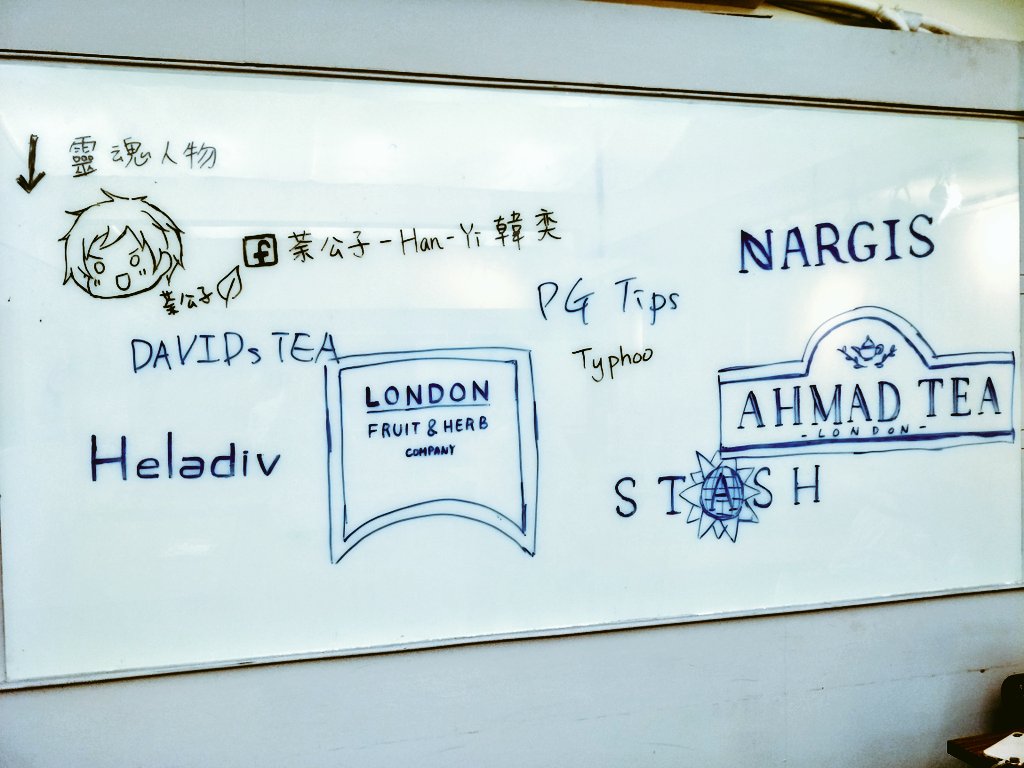 靈魂人物
f 茶公子-Han-Yi 韓奕
茶公子
DAVIDs TEA
PG Tips
NARGIS
Typhoo
LONDON
FRUIT & HERB
COMPANY
AHMAD TEA
- LONDON -
Heladiv
STASH